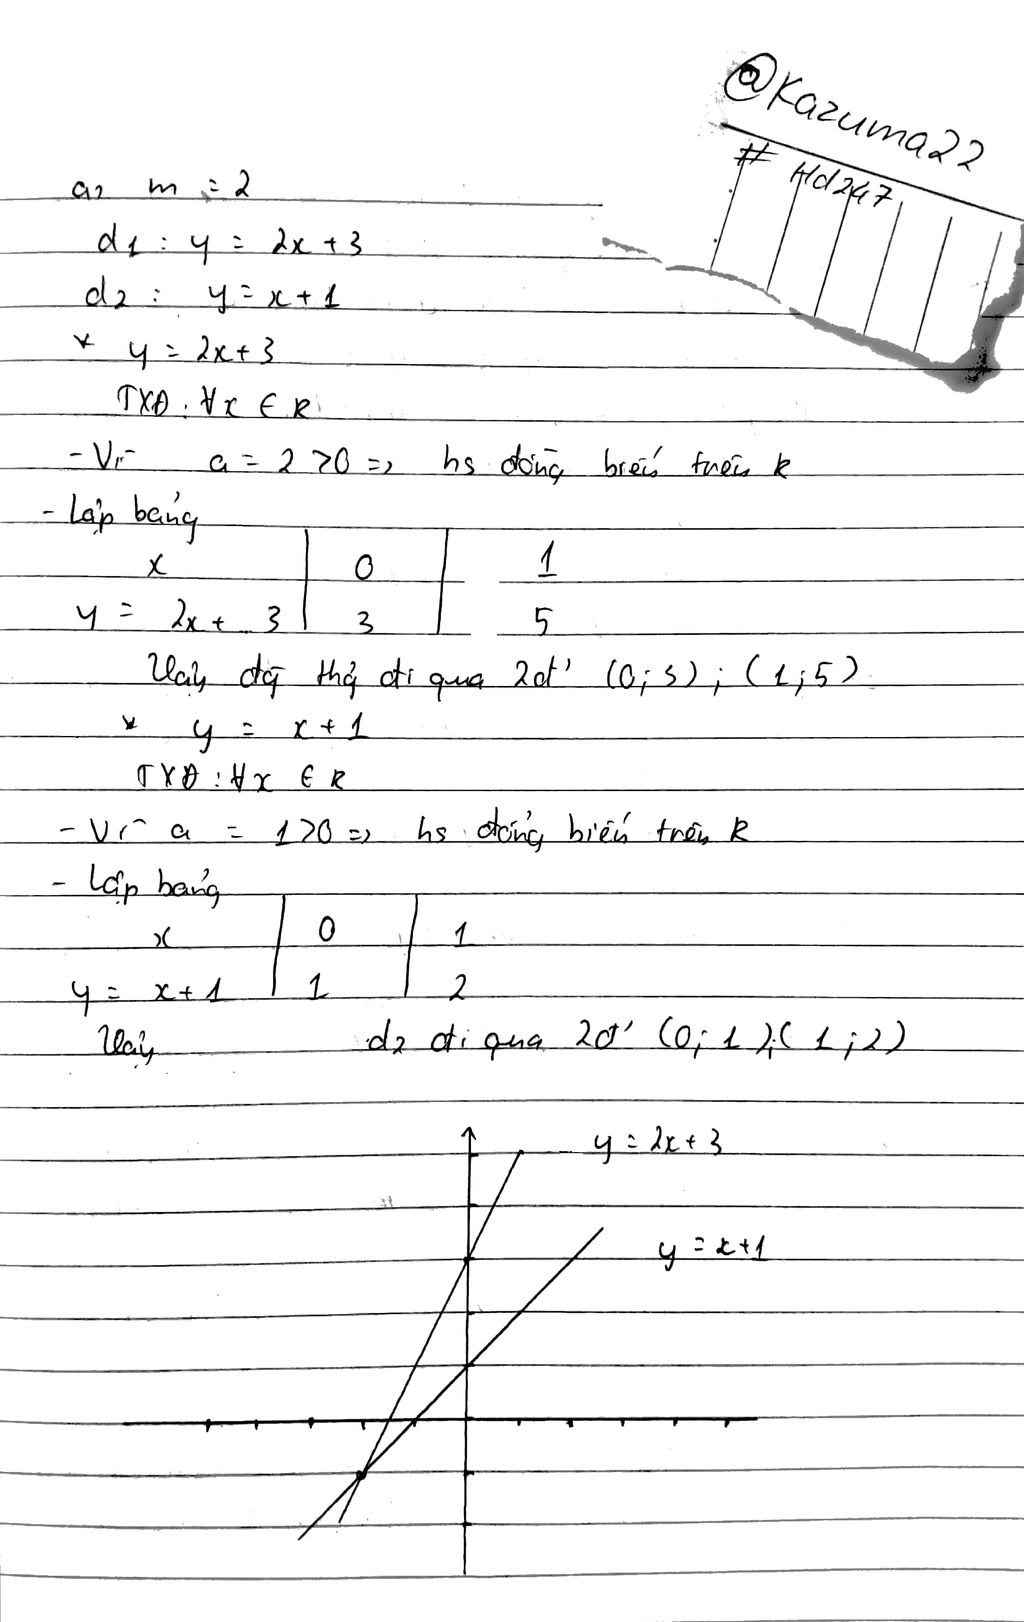 @Kazuma22
# Hd247
a, m = 2
d1 : y = 2x + 3
d2 : y = x + 1
* y = 2x + 3
TXĐ : ∀x ∈ R
- Vì a = 2 > 0 => hs đồng biến trên R
- Lập bảng
x | 0 | 1
y = 2x + 3 | 3 | 5
Vậy đồ thị đi qua 2đ' (0; 3) ; (1; 5)
* y = x + 1
TXĐ : ∀x ∈ R
- Vì a = 1 > 0 => hs đồng biến trên R
- Lập bảng
x | 0 | 1
y = x + 1 | 1 | 2
Vậy d2 đi qua 2đ' (0; 1 ); ( 1 ; 2)
y = 2x + 3
y = x + 1